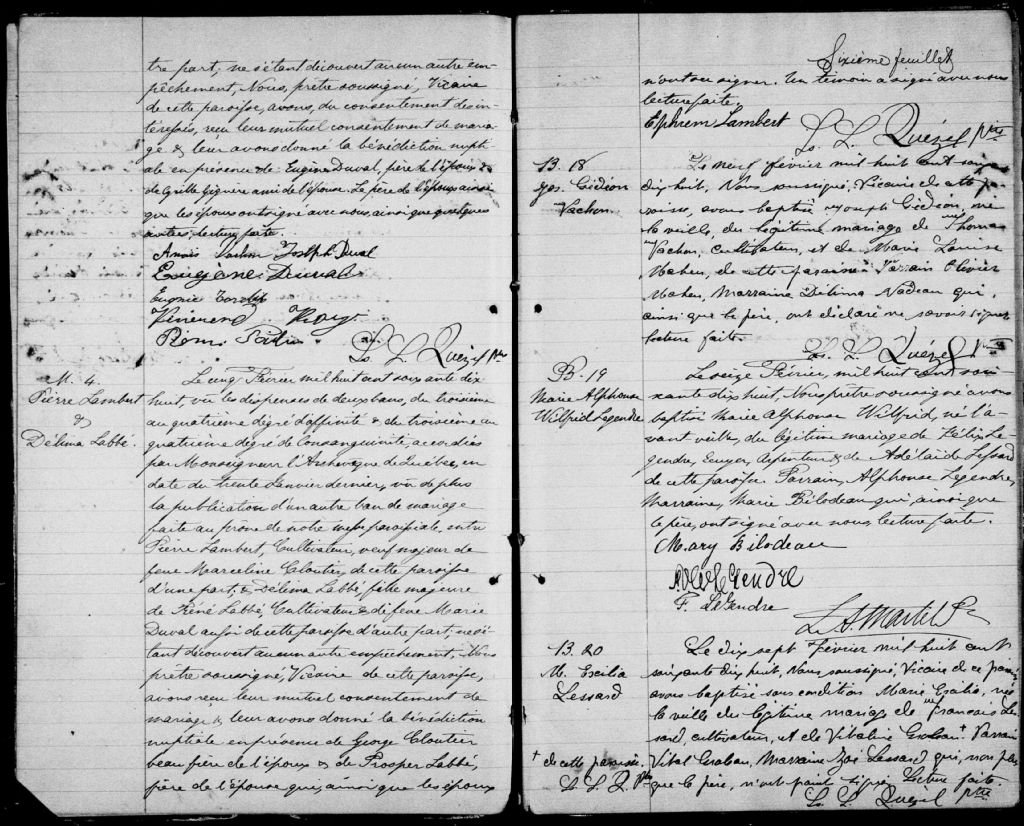 tre part; ne s'étant découvert aucun autre em-
pêchement, Nous, prêtre soussigné, Vicaire
de cette paroisse, avons, du consentement des in-
téressés, reçu leur mutuel consentement de maria-
ge & leur avons donné la bénédiction nupti-
ale en présence de Eugène Duval, père de l'époux &
de Giguère ami de l'épouse. Le père de l'époux ainsi
que les époux ont signé avec nous, ainsi que quelques
autres, lecture faite.
Joseph Duval
Eugène Duval
Eugénie
Vénérend
Rémi
Ls. L. Quézel Ptre
M. 4.
Pierre Lambert
&
Délima Labbé.
Le cinq Février mil huit cent soixante dix
huit, vu les dispenses de deux bans, du troisième
au quatrième degré d'affinité & du troisième au
quatrième degré de Consanguinité accordées
par Monseigneur l'Archevêque de Québec, en
date du trente Janvier dernier, vu de plus
la publication d'un autre ban de mariage
faite au prône de notre messe paroissiale entre
Pierre Lambert, Cultivateur, veuf majeur de
feue Marceline Cloutier de cette paroisse
d'une part; & Délima Labbé, fille majeure
de Réné Labbé, Cultivateur & de feue Marie
Duval aussi de cette paroisse d'autre part; ne s'é-
tant découvert aucun autre empêchement, Nous
prêtre soussigné, Vicaire de cette paroisse,
avons reçu leur mutuel consentement de
mariage & leur avons donné la bénédiction
nuptiale en présence de George Cloutier
beau frère de l'époux & de Prosper Labbé,
frère de l'épouse qui, ainsi que les époux
Sixième feuillet
n'ont su signer. Un témoin a signé avec nous
lecture faite.
Ephrem Lambert
Ls. L. Quézel Ptre
B. 18
Jos. Gédéon
Vachon
Le neuf février mil huit cent soixante
dix huit, Nous soussigné, Vicaire de cette pa-
roisse, avons baptisé Joseph Gédéon, né
la veille, du légitime mariage de Thomas
Vachon, cultivateur, et de Marie Louise
Maheu, de cette paroisse. Parrain Olivier
Maheu, Marraine Délima Nadeau qui,
ainsi que le père, ont déclaré ne savoir signer
lecture faite.
Ls. L. Quézel Ptre
B. 19
Marie Alphonse
Wilfrid Legendre
Le seize Février, mil huit cent soi-
xante dix huit, Nous prêtre soussigné avons
baptisé Marie Alphonse Wilfrid, né l'a-
vant veille, du légitime mariage de Félix Le-
gendre, Ecuyer, Arpenteur & de Adélaïde Lessard
de cette paroisse Parrain, Alphonse Legendre,
Marraine, Marie Bilodeau qui, ainsi que
le père, ont signé avec nous lecture faite.
Mary Bilodeau
Legendre
F. LeGendre
L. A. Martel Ptre
B. 20
M. Ezilia
Lessard
Le dix sept Février mil huit cent
soixante dix huit, Nous soussigné, Vicaire de ce
avons baptisé sous condition Marie Ezilia, née
la veille du légitime mariage de François Les-
sard, cultivateur, et de Vitaline + Parrain
Vital, Marraine Zoé Lessard qui, non plus
que le père, n'ont point signé. Lecture faite.
Ls. L. Quézel ptre
+ de cette paroisse.
L. L. Q. Ptre